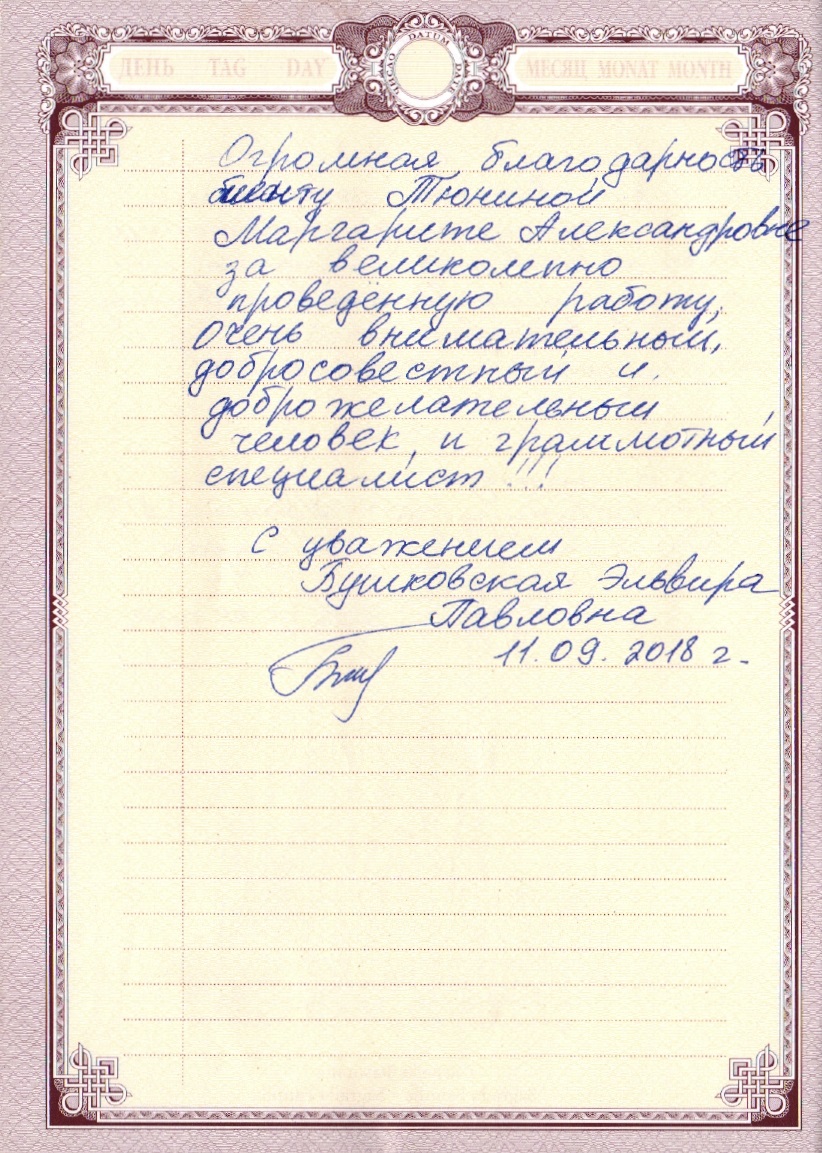 ДЕНЬ TAG DAY DATUM МЕСЯЦ MONAT MONTH
Огромная благодарность
Тюниной
Маргарите Александровне
за великолепно
проведённую работу,
очень внимательный,
добросовестный и
доброжелательный
человек, и граммотный
специалист !!!
С уважением
Бушковская Эльвира
Павловна
11.09.2018 г.